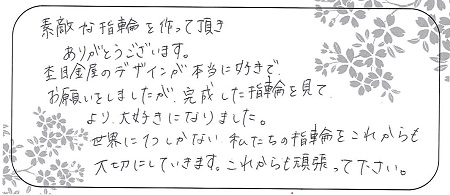 素敵な指輪を作って頂き
ありがとうございます。
杢目金屋のデザインが本当に好きで、
お願いをしましたが、完成した指輪を見て、
より、大好きになりました。
世界に1つしかない私たちの指輪をこれからも
大切にしていきます。これからも頑張って下さい。